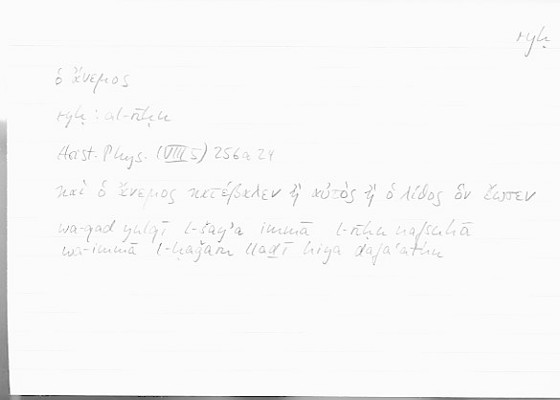 ryḥ
ὁ ἄνεμος
ryḥ : al-rīḥu
Arist. Phys. (VIII 5) 256a 24
καὶ ὁ ἄνεμος κατέβαλεν ἢ αὐτὸς ἢ ὁ λίθος ὃν ἔωσεν
wa-qad yulqī l-šayʾa immā l-rīḥu nafsuhā
wa-immā l-ḥaǧaru llaḏī hiya dafaʿathu